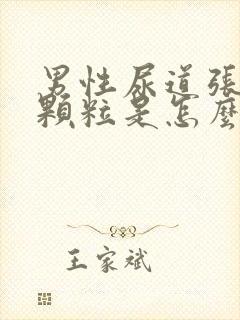 男性尿道張
顆粒是怎麼
王家斌